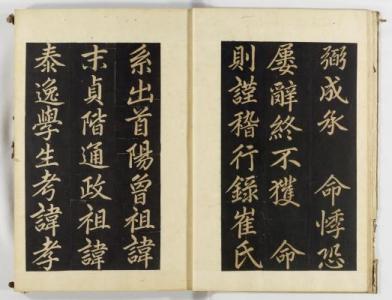 弼成承 命悸恐
屢辭終不獲 命
則謹稽行錄崔氏
系出首陽曾祖諱
末貞階通政祖諱
泰逸學生考諱孝